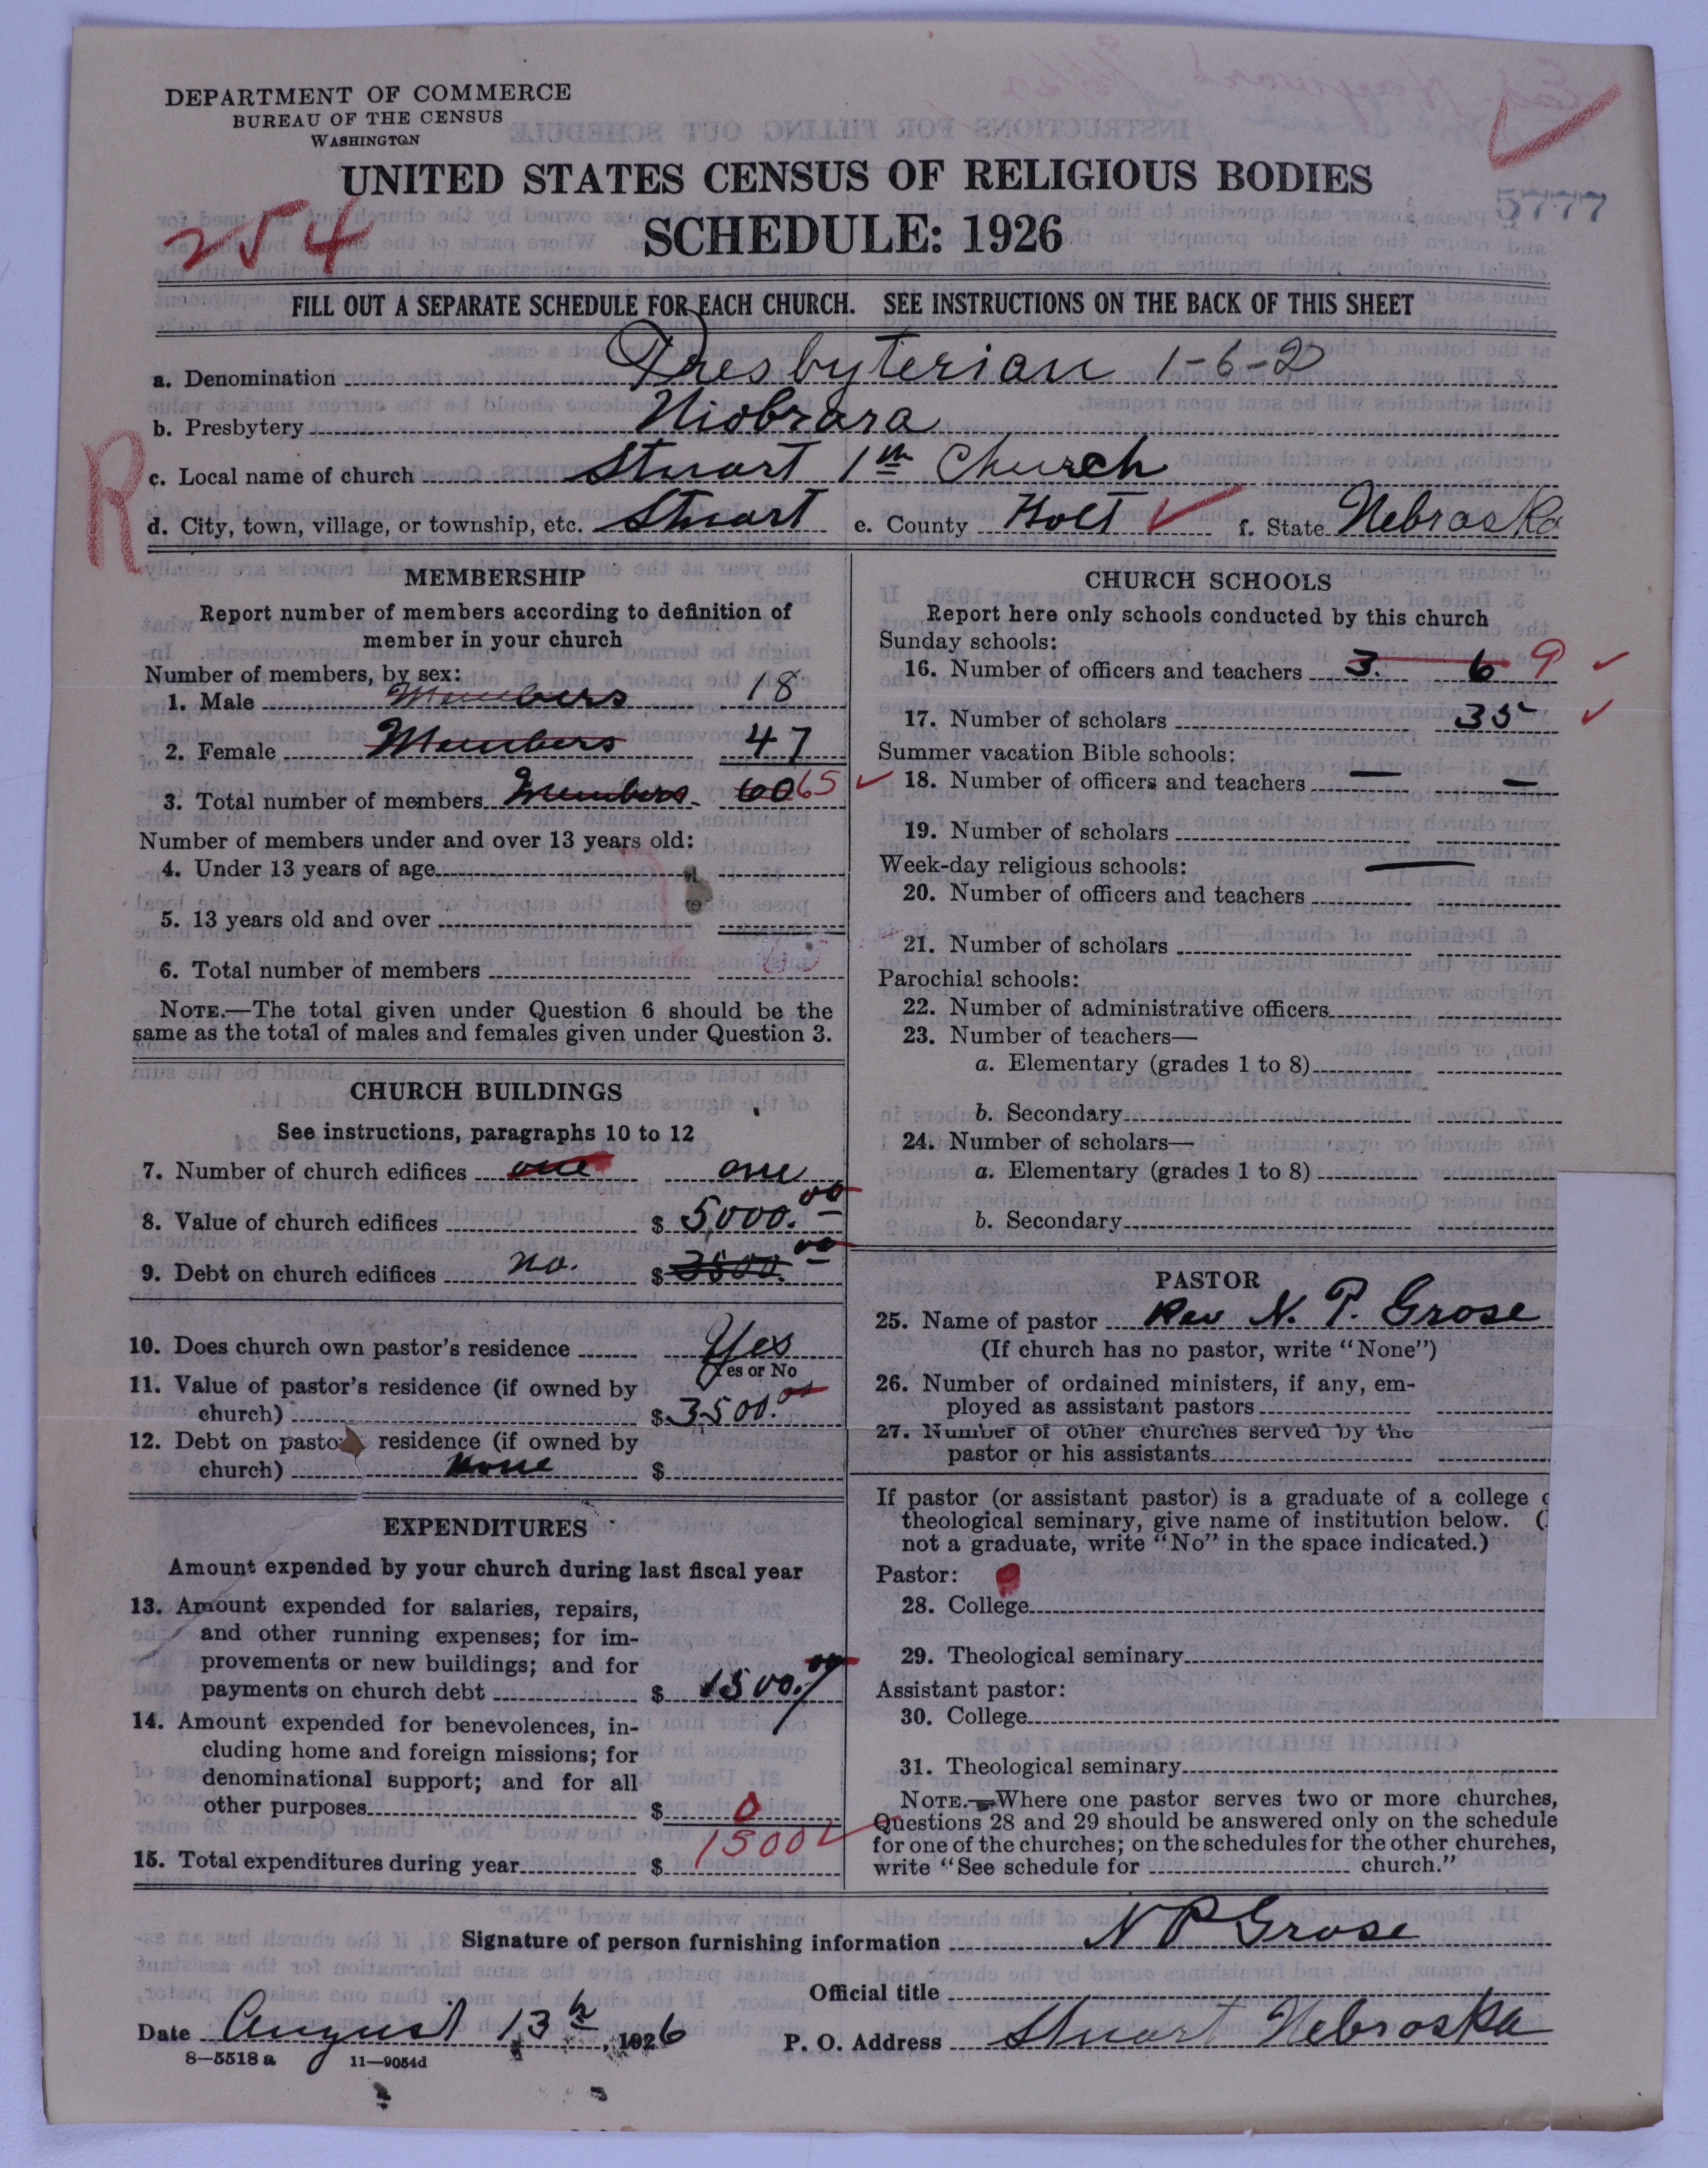 DEPARTMENT OF COMMERCE
BUREAU OF THE CENSUS
WASHINGTON
UNITED STATES CENSUS OF RELIGIOUS BODIES
5777
254
SCHEDULE: 1926
FILL OUT A SEPARATE SCHEDULE FOR EACH CHURCH. SEE INSTRUCTIONS ON THE BACK OF THIS SHEET
a. Denomination Presbyterian 1-6-2
b. Presbytery Niobrara
R
c. Local name of church Stuart 1th Church
d. City, town, village, or township, etc. Stuart e. County Holt f. State Nebraska
MEMBERSHIP
Report number of members according to definition of
member in your church
Number of members, by sex:
1. Male Members 18
2. Female Members 47
3. Total number of members Members 60 65
Number of members under and over 13 years old:
4. Under 13 years of age
5. 13 years old and over
6. Total number of members
NOTE.—The total given under Question 6 should be the
same as the total of males and females given under Question 3.
CHURCH BUILDINGS
See instructions, paragraphs 10 to 12
7. Number of church edifices one one
8. Value of church edifices $ 5,000.00
9. Debt on church edifices no. $ 3500.00
10. Does church own pastor's residence Yes
Yes or No
11. Value of pastor's residence (if owned by
church) $ 3500.00
12. Debt on pasto residence (if owned by
church) None $
EXPENDITURES
Amount expended by your church during last fiscal year
13. Amount expended for salaries, repairs,
and other running expenses; for im-
provements or new buildings; and for
payments on church debt $ 1500.00
14. Amount expended for benevolences, in-
cluding home and foreign missions; for
denominational support; and for all
other purposes $ 0
15. Total expenditures during year $ 1500
CHURCH SCHOOLS
Report here only schools conducted by this church
Sunday schools:
16. Number of officers and teachers 3. 6 9
17. Number of scholars 35
Summer vacation Bible schools:
18. Number of officers and teachers — —
19. Number of scholars
Week-day religious schools: —
20. Number of officers and teachers
21. Number of scholars
Parochial schools:
22. Number of administrative officers
23. Number of teachers—
a. Elementary (grades 1 to 8)
b. Secondary
24. Number of scholars—
a. Elementary (grades 1 to 8)
b. Secondary
PASTOR
25. Name of pastor Rev N. P. Grose
(If church has no pastor, write "None")
26. Number of ordained ministers, if any, em-
ployed as assistant pastors
27. Number of other churches served by the
pastor or his assistants
If pastor (or assistant pastor) is a graduate of a college
theological seminary, give name of institution below. (
not a graduate, write "No" in the space indicated.)
Pastor:
28. College
29. Theological seminary
Assistant pastor:
30. College
31. Theological seminary
NOTE.—Where one pastor serves two or more churches,
Questions 28 and 29 should be answered only on the schedule
for one of the churches; on the schedules for the other churches,
write "See schedule for church."
Signature of person furnishing information N P Grose
Official title
Date August 13th, 1926 P. O. Address Stuart Nebraska
8—5518 a 11—9054d